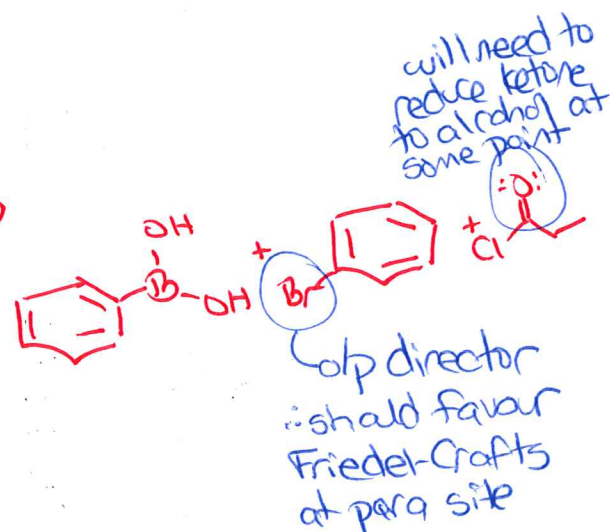 will need to
reduce ketone
to alcohol at
some point
:O:
OH
+
+
Cl
B
OH
Br
o/p director
∴ should favour
Friedel-Crafts
at para site